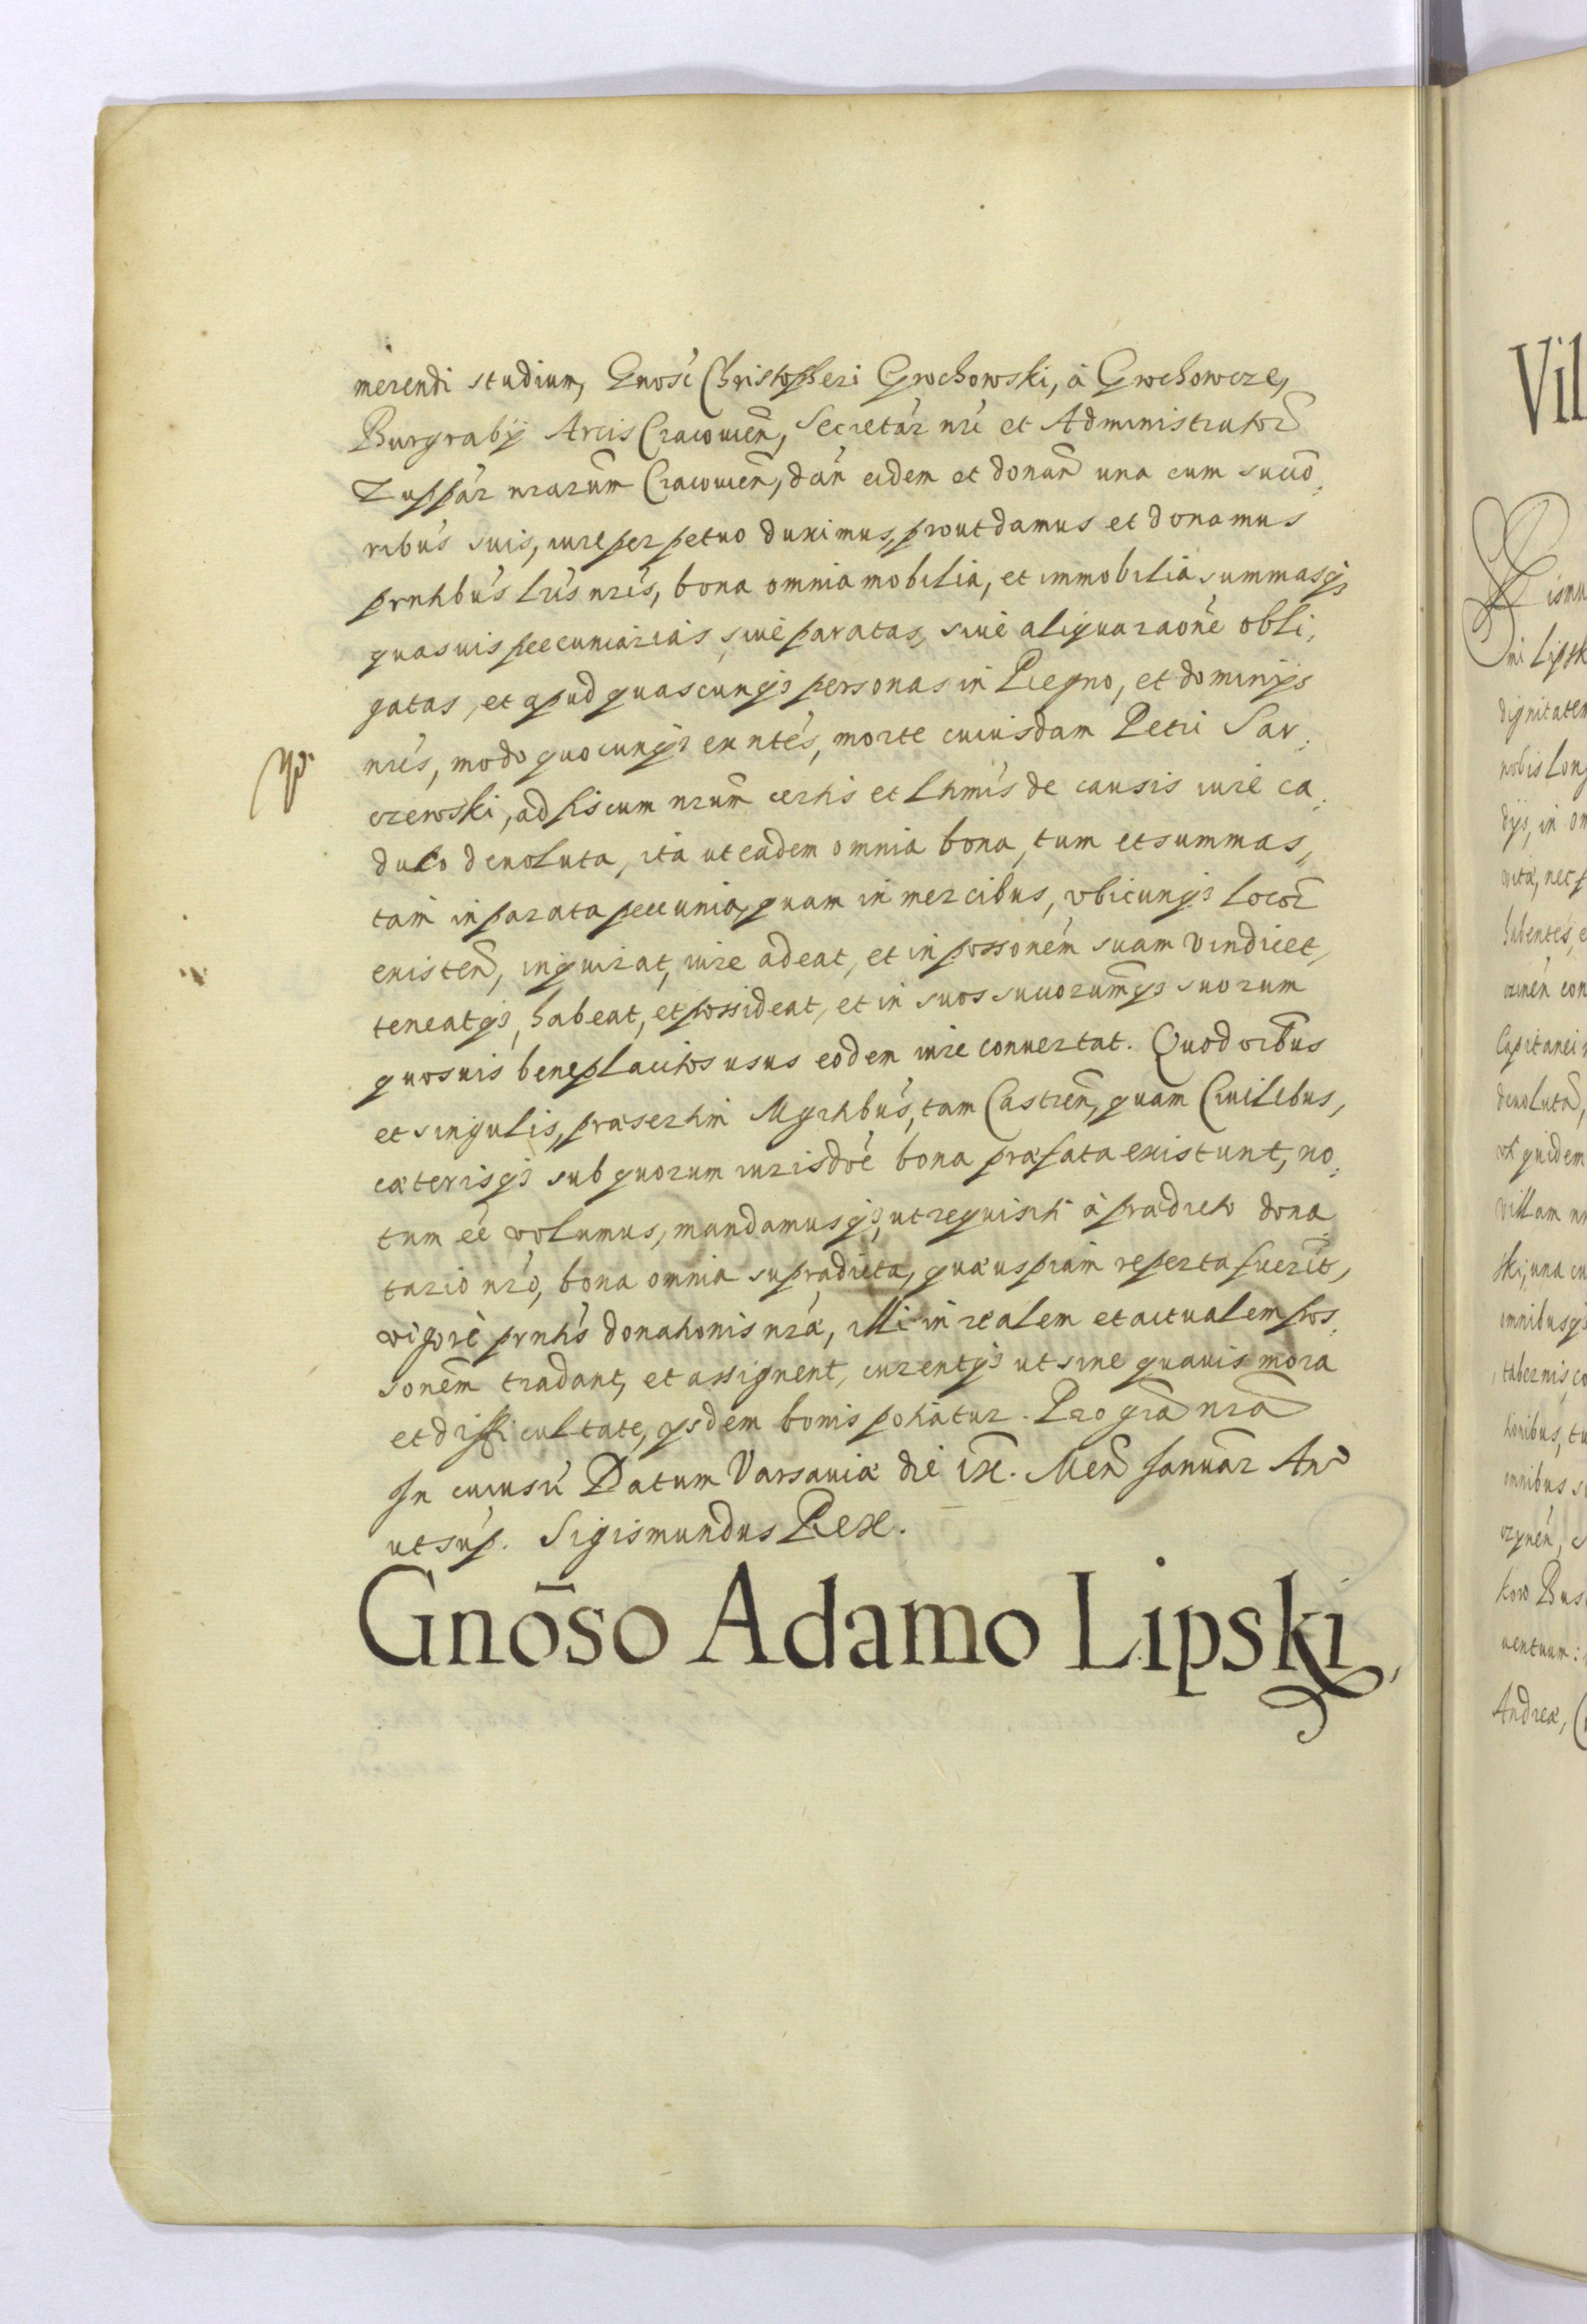 merendi studium, Gnosi Christopheri Grochowski, à Grochowcze,
Burgrabij Arcis Cracouien, Secretar nri et Administrator
Zuppar nrarum Cracouien, dan eidem et donan una cum succo,
ribus suis, iure perpetuo duximus, prout damus et donamus
prntibus Lris nris, bona omnia mobilia, et immobilia summasq3
quasuis peccuniarias, siue paratas, siue aliqua raone obli,
gatas, et apud quascunq3 personas in Regno, et dominijs
nris, modo quocunq3 exntes, morte cuiusdam Petri Sar,
czewski, ad fiscum nrum certis et Ltimis de causis iure ca,
duco deuoluta, ita ut eadem omnia bona, tum et summas,
tam in parata peccunia, quam in mercibus, vbicunq3 Locor
existen, inquirat, iure adeat, et in possonem suam vindicet,
teneatq3, habeat, et possideat, et in suos succorumq3 suorum
quosuis beneplacitos usus eodem iure conuertat. Quod oibus
et singulis, præsertim Mgrtibus, tam Castren, quam Ciuilibus,
cæterisq3 sub quorum iurisdoe bona præfata existunt, no,
tum eê volumus, mandamusq3, ut requisiti à prædicto dona,
tario nro, bona omnia supradicta, quæ uspiam reperta fuerit,
vigore prntis donationis nræ, illi in realem et actualem pos,
sonem tradant, et assignent, curentq3 ut sine quauis mora
et difficultate, ysdem bonis potiatur. Pro gra nra
In cuius rei Datum Varsauiæ die ix. Men Januar An
ut sup. Sigismundus Rex.
Gnoso Adamo Lipski,
Vil
ni Lipsk
dignitatem
nobis Long
dijs, in om
vita, nec
habentes, e
Capitanei
deuoluta,
quidem
villam nr
ski, una cu
omnibusq3
tabernis, co
omnibus
Andreæ,